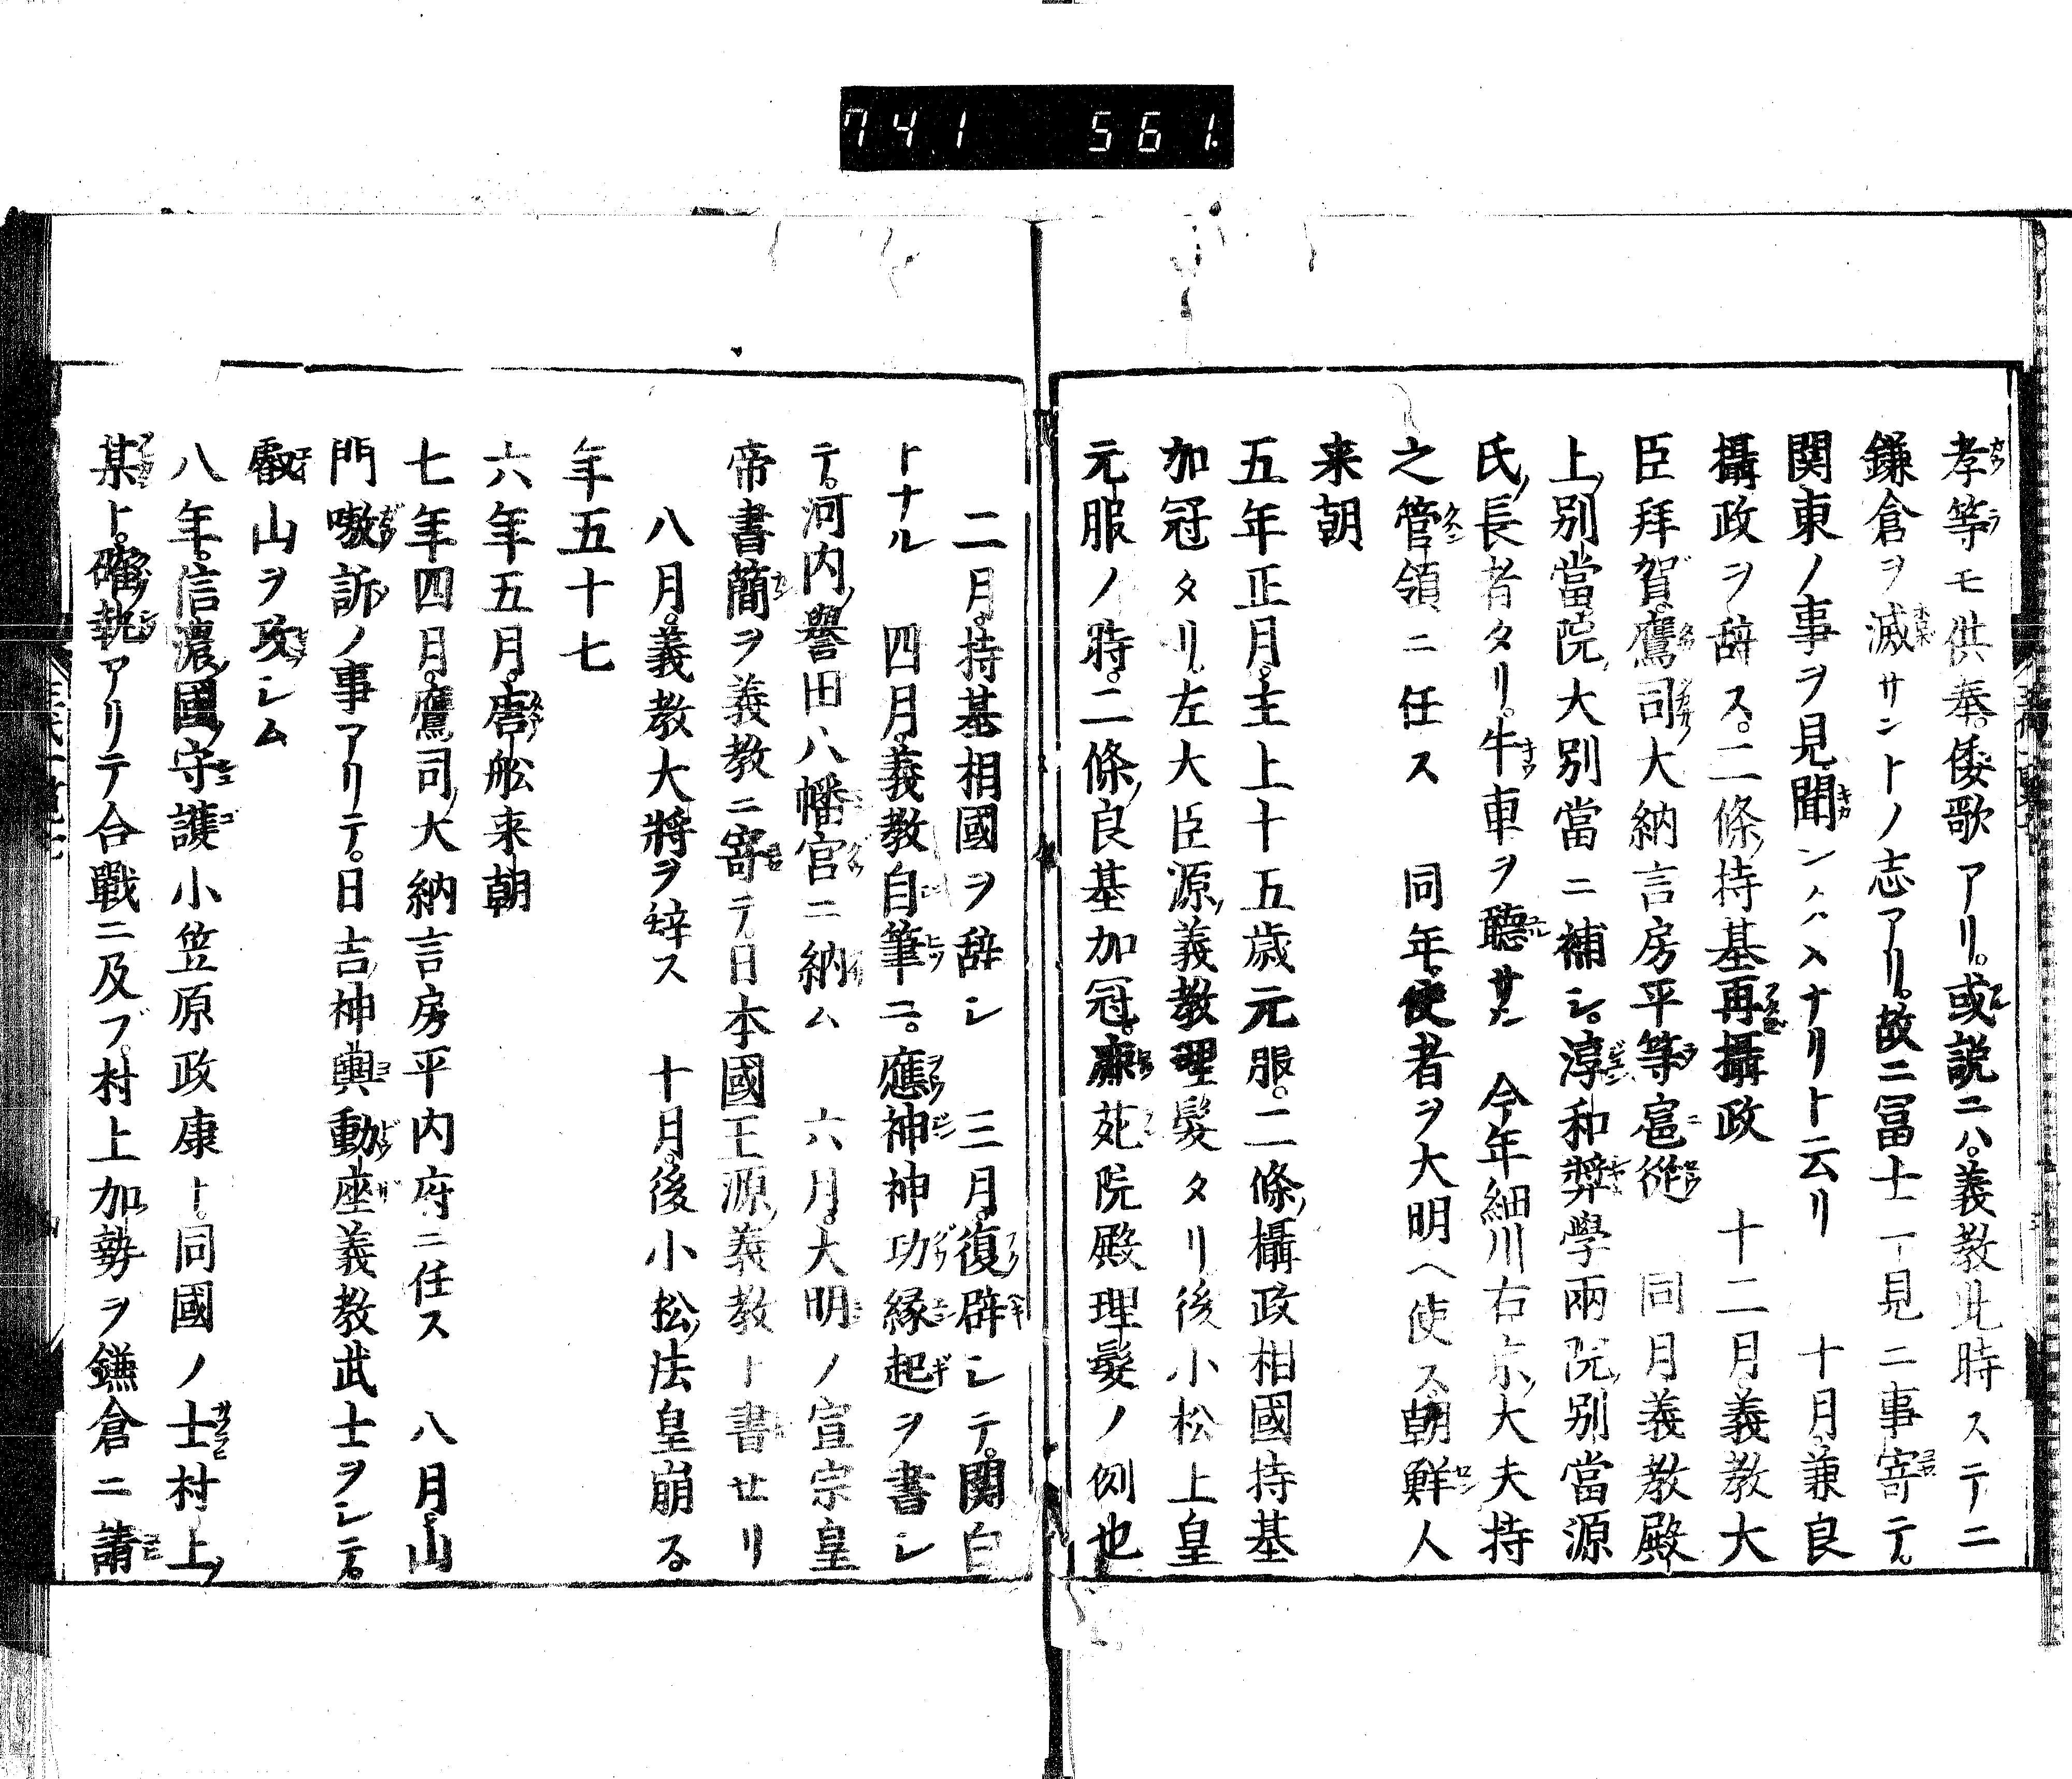 741 561.
孝等モ供奉。倭歌アリ。或説ニハ。義教此時ステニ
鎌倉ヲ滅サントノ志アリ。故ニ冨士一見ニ事寄テ。
関東ノ事ヲ見聞ンタメナリト云リ 十月。兼良
攝政ヲ辞ス。二條持基再攝政 十二月。義教大
臣拜賀。鷹司大納言房平等扈從 同月義教殿
上別當院大別當ニ補シ。淳和奨學兩院別當源
氏長者タリ。牛車ヲ聽サル 今年細川右京大夫持
之管領ニ任ス 同年。使者ヲ大明ヘ使ス。朝鮮人
来朝
五年正月。主上十五歳元服。二條攝政相國持基
加冠タリ。左大臣源義教理髪タリ後小松上皇
元服ノ時。二條良基加冠。鹿苑院殿理髪ノ例也
二月。持基相國ヲ辞シ 三月。復辟シテ。関白
トナル 四月。義教自筆ニ。應神神功縁起ヲ書シ
テ。河内譽田八幡宮ニ納ム 六月。大明ノ宣宗皇
帝書簡ヲ義教ニ寄テ日本國王源義教ト書セリ
八月。義教大將ヲ辞ス 十月。後小松法皇崩る
年五十七
六年五月。唐舩来朝
七年四月。鷹司大納言房平内府ニ任ス 八月。山
門嗷訴ノ事アリテ。日吉神輿動座義教武士ヲシテ。
叡山ヲ攻シム
八年。信濃國守護小笠原政康ト。同國ノ士村上
某ト。確執アリテ合戰ニ及ブ。村上加勢ヲ鎌倉ニ請